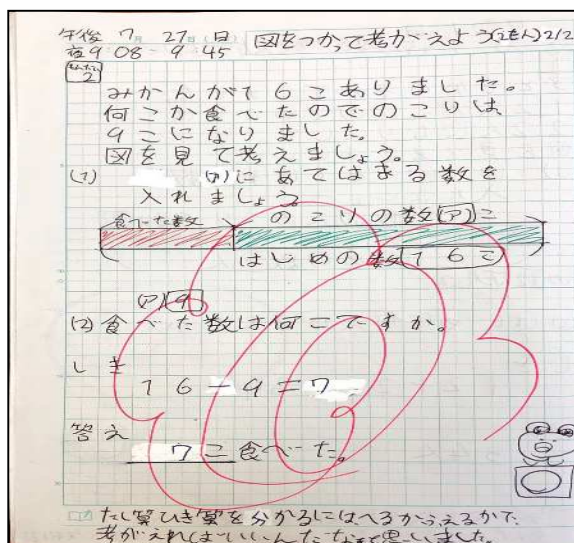 午後 7月 27日
夜9:08-9:45 図をつかって考がえよう(2もん)2/2
もんだい2
みかんが16こありました。
何こか食べたのでのこりは、
9こになりました。
図を見て考えましょう。
(1) (ア)にあてはまる数を
入れましょう。
食べた数 のこりの数(ア)こ
はじめの数16こ
(ア)9
(2)食べた数は何こですか。
しき
16-9=7
答え
7こ食べた。
たし算ひき算を分かるにはへるかふえるかで、
考がえればいいんだなあと思いました。